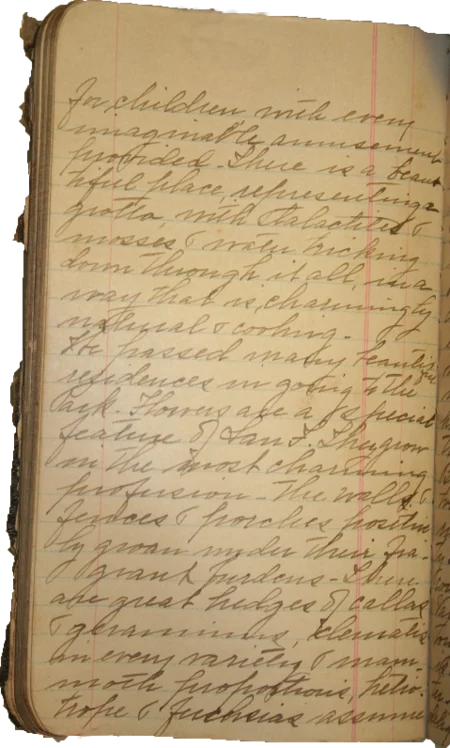 for children with every
imaginable amusement
provided. There is a beau-
tiful place, representing a
grotto, with stalactites &
mosses & water trickling
down through it all, in a
way that is, charmingly
natural & cooling.
We passed many beautiful
residences in going to the
Park. Flowers are a special
feature of San F. They grow
in the most charming
profusion - the walls &
fences & porches positive-
ly groan under their fra-
grant burdens - There
are great hedges of callas
& geraniums, clematis
in every variety & mam-
moth proportions, helio-
trope & fuchsias assume